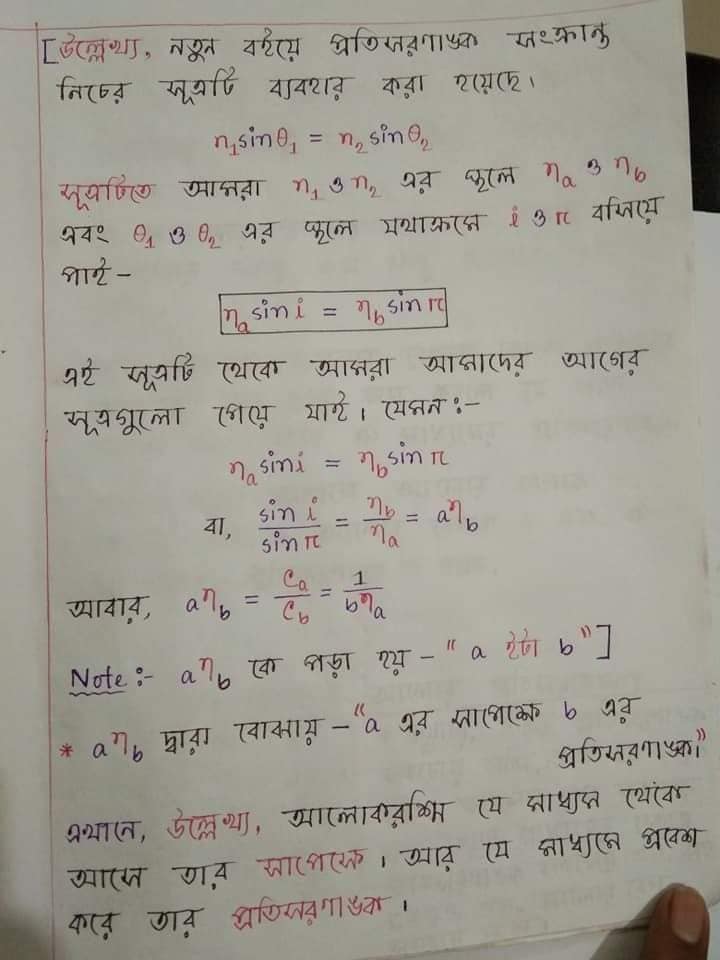 [উল্লেখ্য, নতুন বইয়ে প্রতিসরণাঙ্ক সংক্রান্ত
নিচের সূত্রটি ব্যবহার করা হয়েছে।
n₁sinθ₁ = n₂sinθ₂
সূত্রটিতে আমরা n₁ ও n₂ এর স্থলে ηa ও ηb
এবং θ₁ ও θ₂ এর স্থলে যথাক্রমে i ও r বসিয়ে
পাই -
ηa sin i = ηb sin r
এই সূত্রটি থেকে আমরা আমাদের আগের
সূত্রগুলো পেয়ে যাই। যেমন:-
ηa sin i = ηb sin r
বা, sin i / sin r = ηb / ηa = aηb
আবার, aηb = Ca / Cb = 1 / bηa
Note:- aηb কে পড়া হয় - "a ইটা b"]
* aηb দ্বারা বোঝায় - "a এর সাপেক্ষে b এর
প্রতিসরণাঙ্ক।"
এখানে, উল্লেখ্য, আলোকরশ্মি যে মাধ্যম থেকে
আসে তার সাপেক্ষে। আর যে মাধ্যমে প্রবেশ
করে তার প্রতিসরণাঙ্ক।